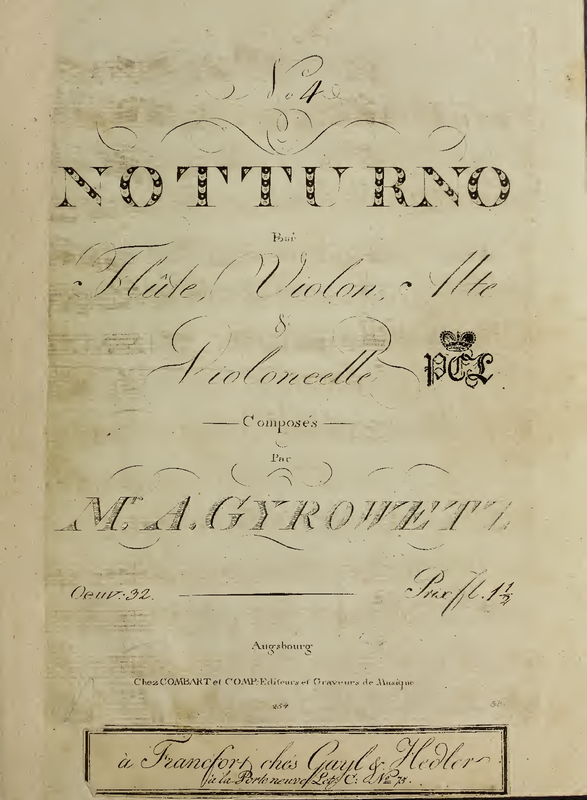 No. 4
NOTTURNO
Pour
Flûte, Violon, Alte
&
Violoncelle
PCL
Composés
Par
Mr. A. GYROWETZ
Oeuv: 32.
Prix fl. 1 1/2
Augsbourg
Chez COMBART et COMP. Editeurs et Graveurs de Musique
254
38.
à Francfort, chés Gayl & Hedler
à la Porte neuve Let. C: No. 73.